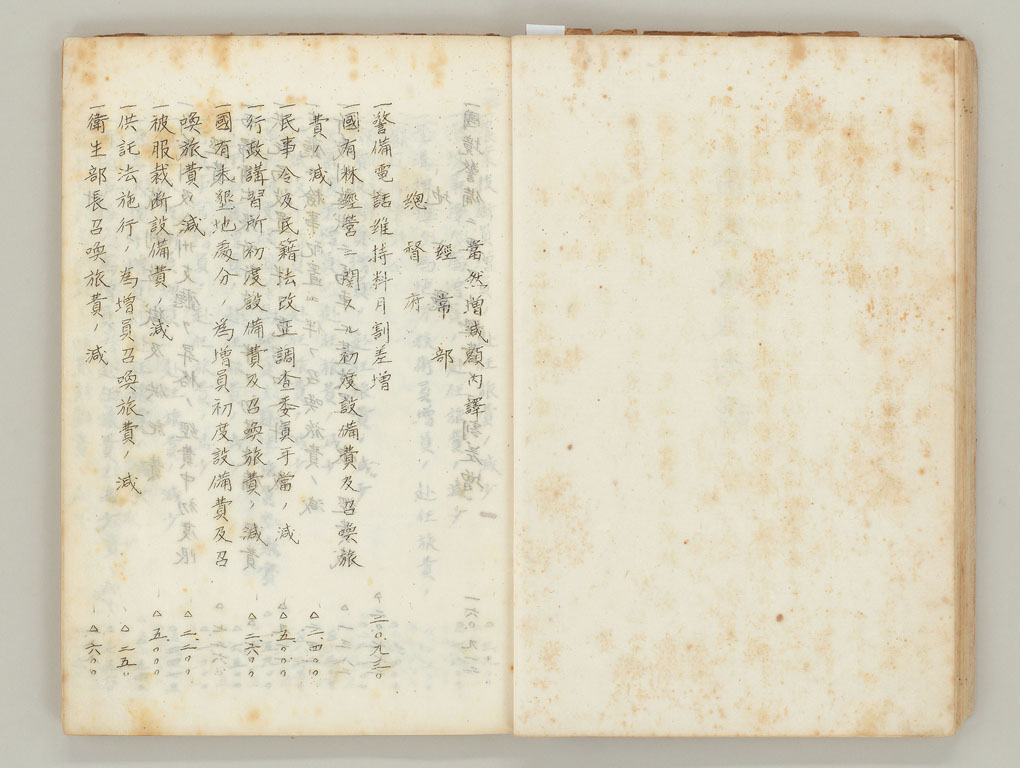 當然増減額内譯
經常部
總督府
一警備電話維持料月割差増
三〇、九三〇
一國有林經營ニ關スル初度設備費及召喚旅
費ノ減
△二、四〇〇
一民事令及民籍法改正調査委員手當ノ減
△五、〇〇〇
一行政講習所初度設備費及召喚旅費ノ減
△二、六〇〇
一國有未墾地處分ノ為増員初度設備費及召
喚旅費ノ減
△二、二〇〇
一被服裁断設備費ノ減
△五、〇〇〇
一供託法施行ノ為増員召喚旅費ノ減
△二五〇
一衛生部長召喚旅費ノ減
△六〇〇